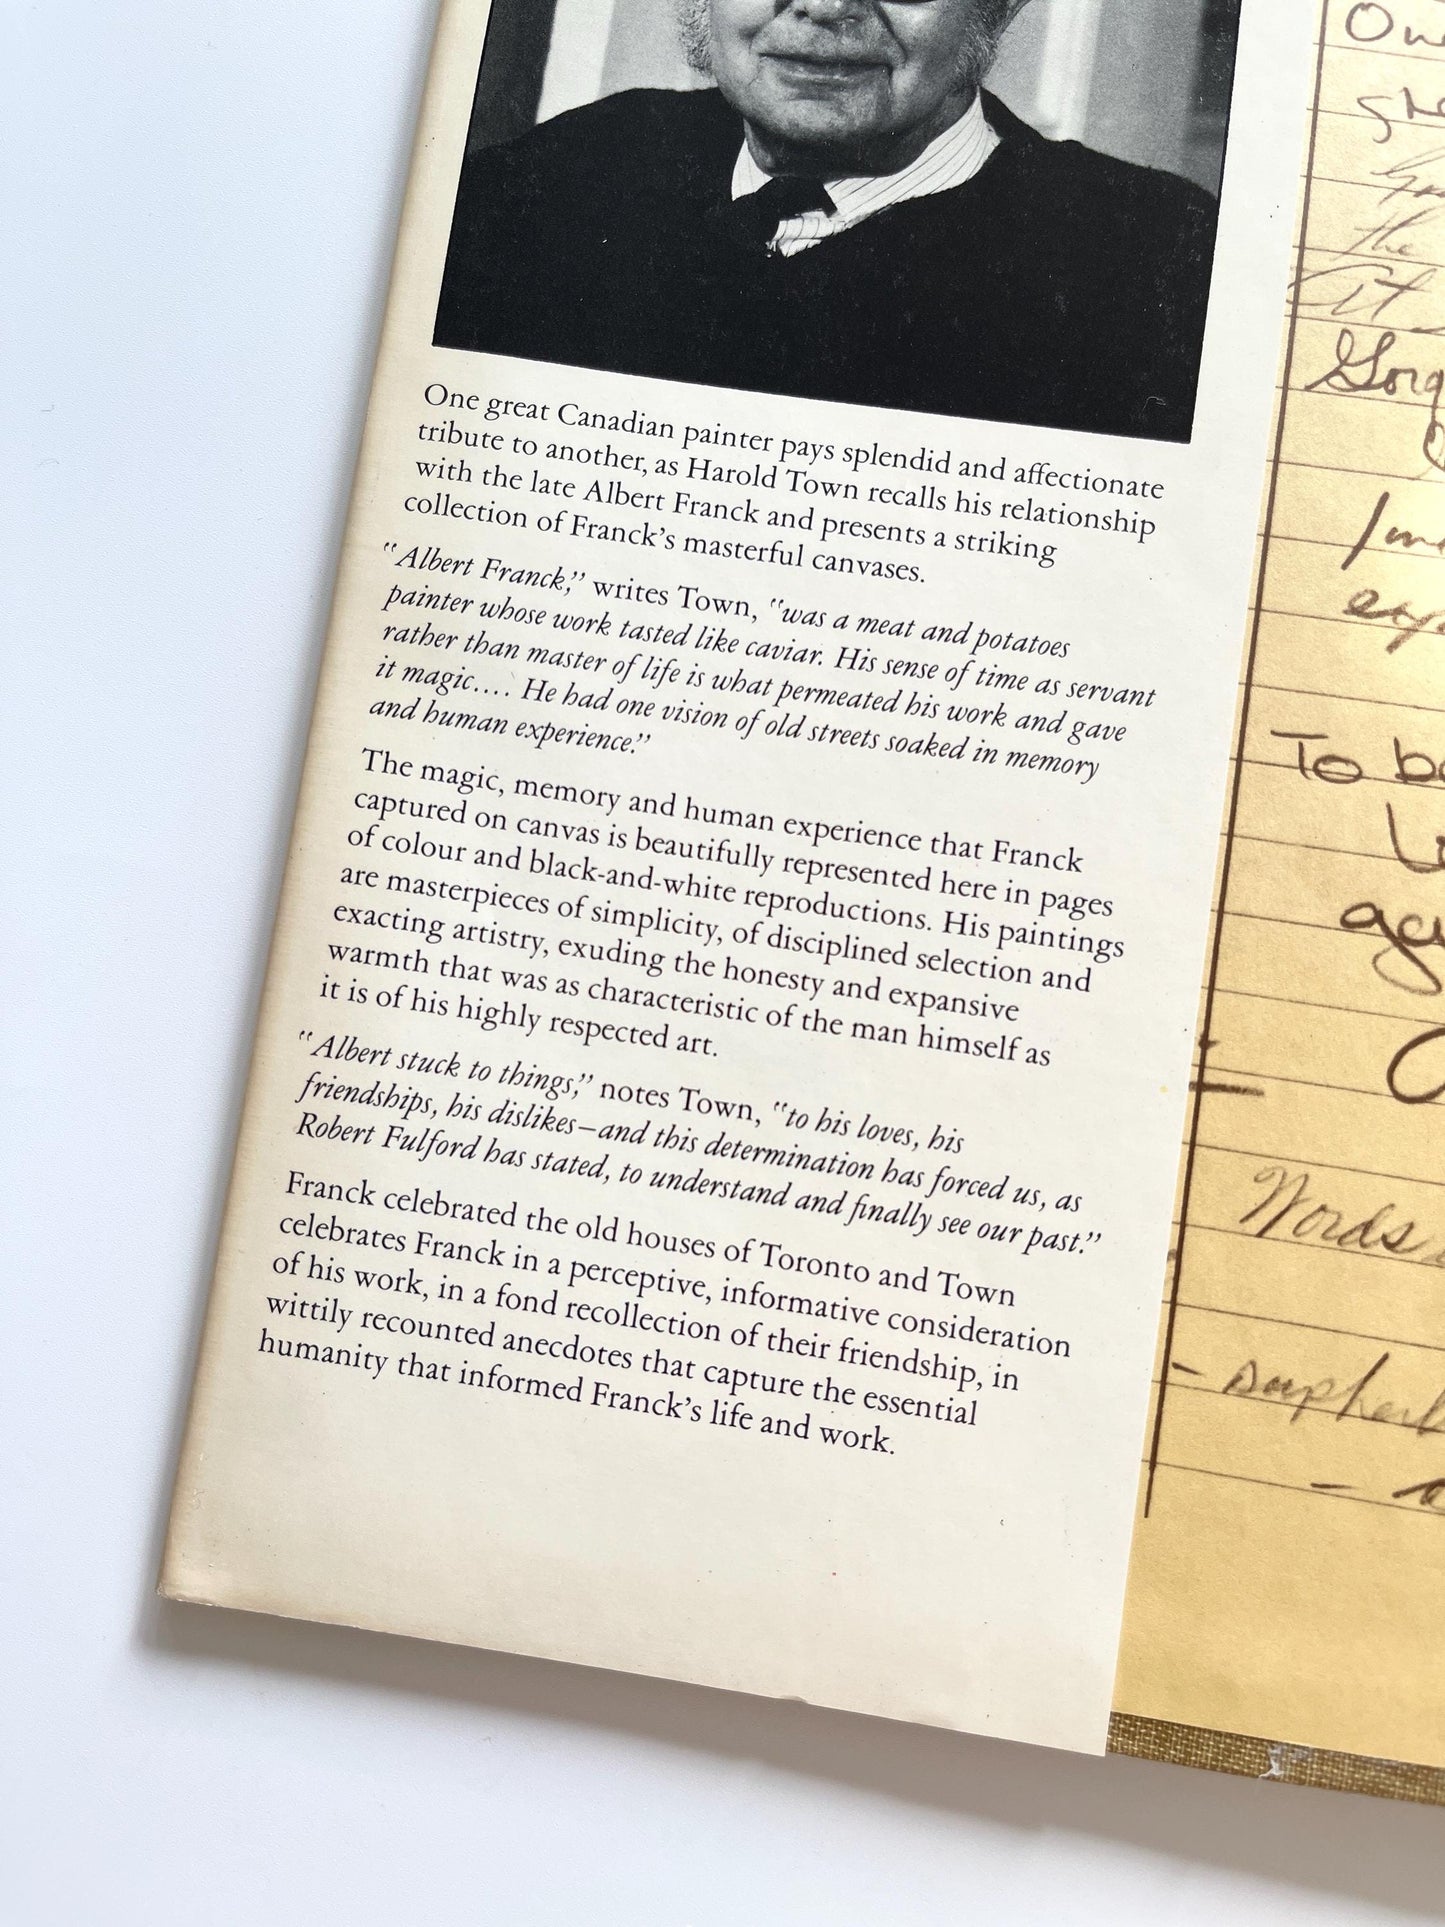 One great Canadian painter pays splendid and affectionate
tribute to another, as Harold Town recalls his relationship
with the late Albert Franck and presents a striking
collection of Franck’s masterful canvases.
“Albert Franck,” writes Town, “was a meat and potatoes
painter whose work tasted like caviar. His sense of time as servant
rather than master of life is what permeated his work and gave
it magic.... He had one vision of old streets soaked in memory
and human experience.”
The magic, memory and human experience that Franck
captured on canvas is beautifully represented here in pages
of colour and black-and-white reproductions. His paintings
are masterpieces of simplicity, of disciplined selection and
exacting artistry, exuding the honesty and expansive
warmth that was as characteristic of the man himself as
it is of his highly respected art.
“Albert stuck to things,” notes Town, “to his loves, his
friendships, his dislikes—and this determination has forced us, as
Robert Fulford has stated, to understand and finally see our past.”
Franck celebrated the old houses of Toronto and Town
celebrates Franck in a perceptive, informative consideration
of his work, in a fond recollection of their friendship, in
wittily recounted anecdotes that capture the essential
humanity that informed Franck’s life and work.
the
At
To
Words